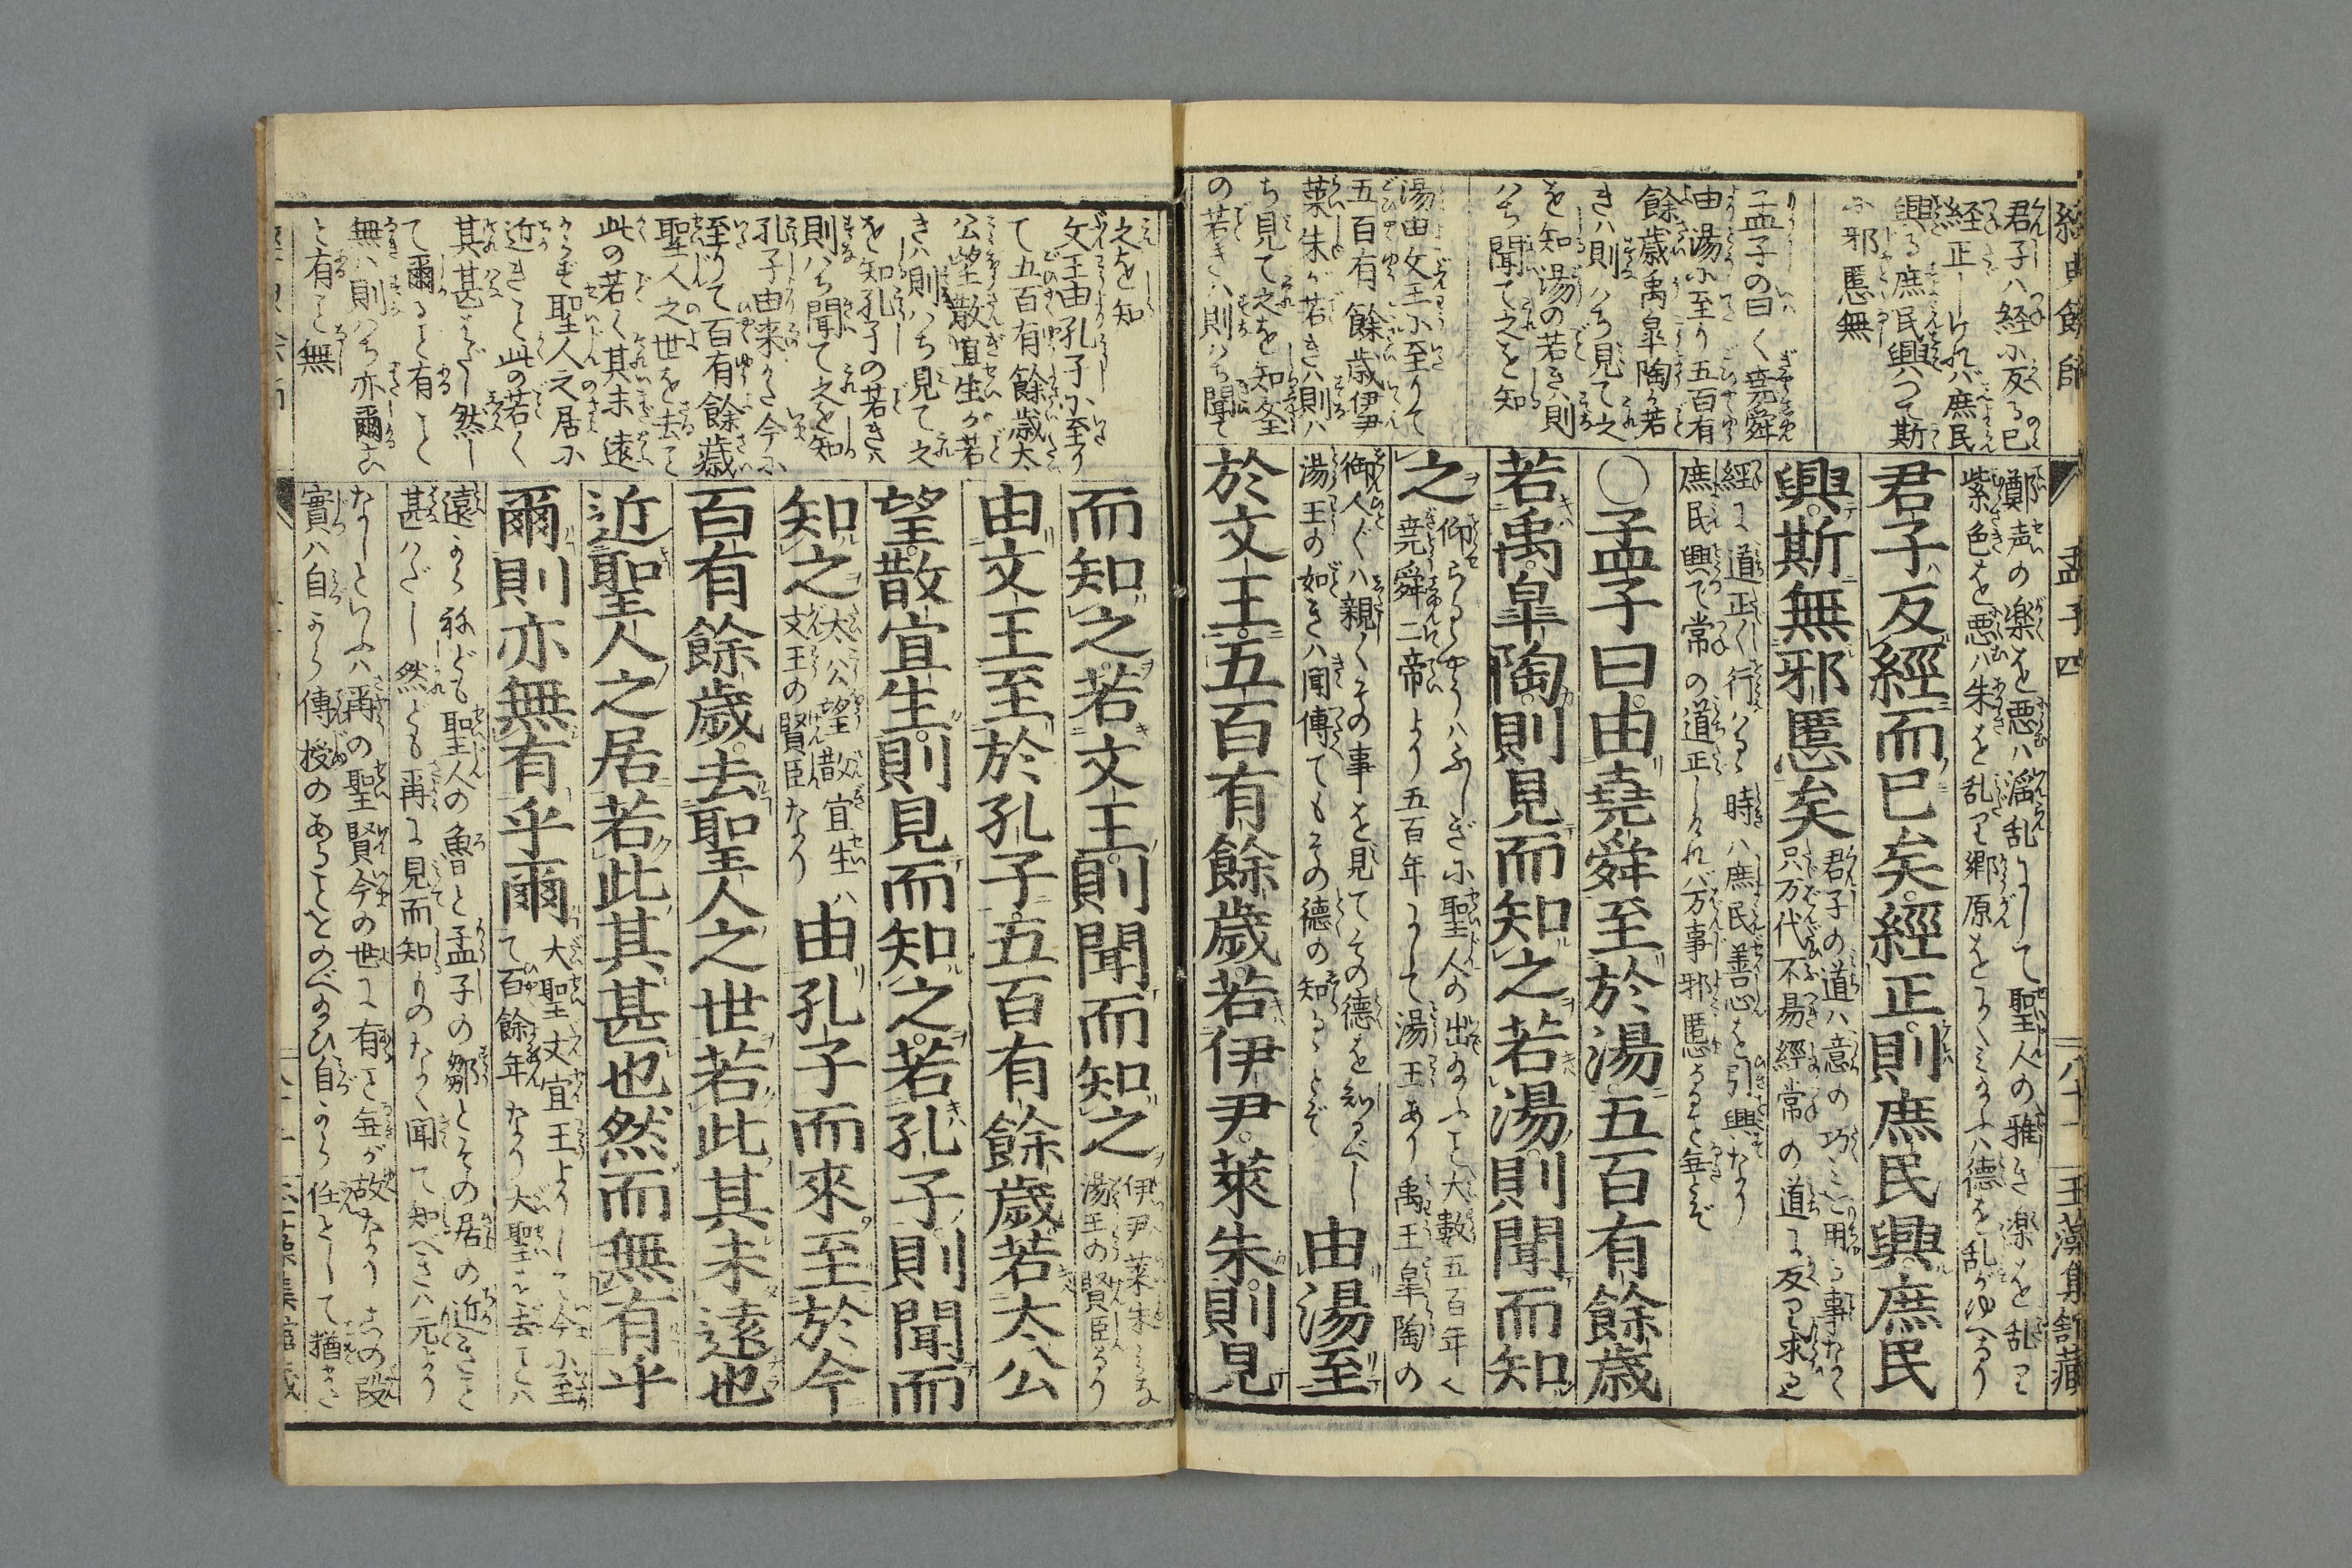 經典餘師
孟子四
君子ハ経に反るの已
経正しけれバ庶民
興る庶民興つて斯
に邪慝無
孟子の曰く堯舜
由湯に至り五百有
餘歳禹皐陶が若
きハ則ハち見て之
を知湯の若きハ則
ハち聞て之を知
湯由文王に至りて
五百有餘歳伊尹
萊朱が若きハ則ハ
ち見て之を知文王
の若きハ則ハち聞て
鄭声の楽を悪ハ淫乱にして聖人の雅き楽を乱り
紫色を悪ハ朱を乱り郷原を
君子反經而已矣經正則庶民興庶民
興斯無邪慝矣
君子の道ハ意の巧を用る事なく
只万代不易經常の道に反り求る
經に道正しく行ハるゝ時ハ庶民善心を引興なり
庶民興で常の道正しけれバ万事邪慝ある事毎とぞ
○孟子曰由堯舜至於湯五百有餘歳
若禹皐陶則見而知之若湯則聞而知
之
堯舜二帝より五百年にして湯王あり禹王皐陶の
御人々ハ親くその事を見てその德を知るべし
湯王の如きハ聞傳てもその德の知るゝとぞ
由湯至
於文王五百有餘歳若伊尹萊朱則見
之を知
文王由孔子に至り
て五百有餘歳太
公望散宜生が若
きハ則ハち見て之
を知孔子の若きハ
則ハち聞て之を知
孔子由来た今に
至りて百有餘歳
聖人之世を去こと
此の若く其未遠
からず聖人之居に
近きこと此の若く
其甚だし然し
て爾ること有こと
無ハ則ハち亦爾こ
と有こと無
而知之若文王則聞而知之
伊尹萊朱ミな
湯王の賢臣なり
由文王至於孔子五百有餘歳若太公
望散宜生則見而知之若孔子則聞而
知之
太公望散宜生ハ
文王の賢臣なり
由孔子而來至於今
百有餘歳去聖人之世若此其未遠也
近聖人之居若此其甚也然而無有乎
爾則亦無有乎爾
大聖文宣王よりして今に至
て百餘年なり大聖を去ことハ
遠からねども聖人の魯と孟子の鄒とその居の近きこと
甚ハだし然れども再に見而知りのなく聞て知べきハ元より
なしとらふハ再の聖賢今の世に有こと毎が故なりこの段
實ハ自から傳授のあることをのべ給ひ自から任として猶